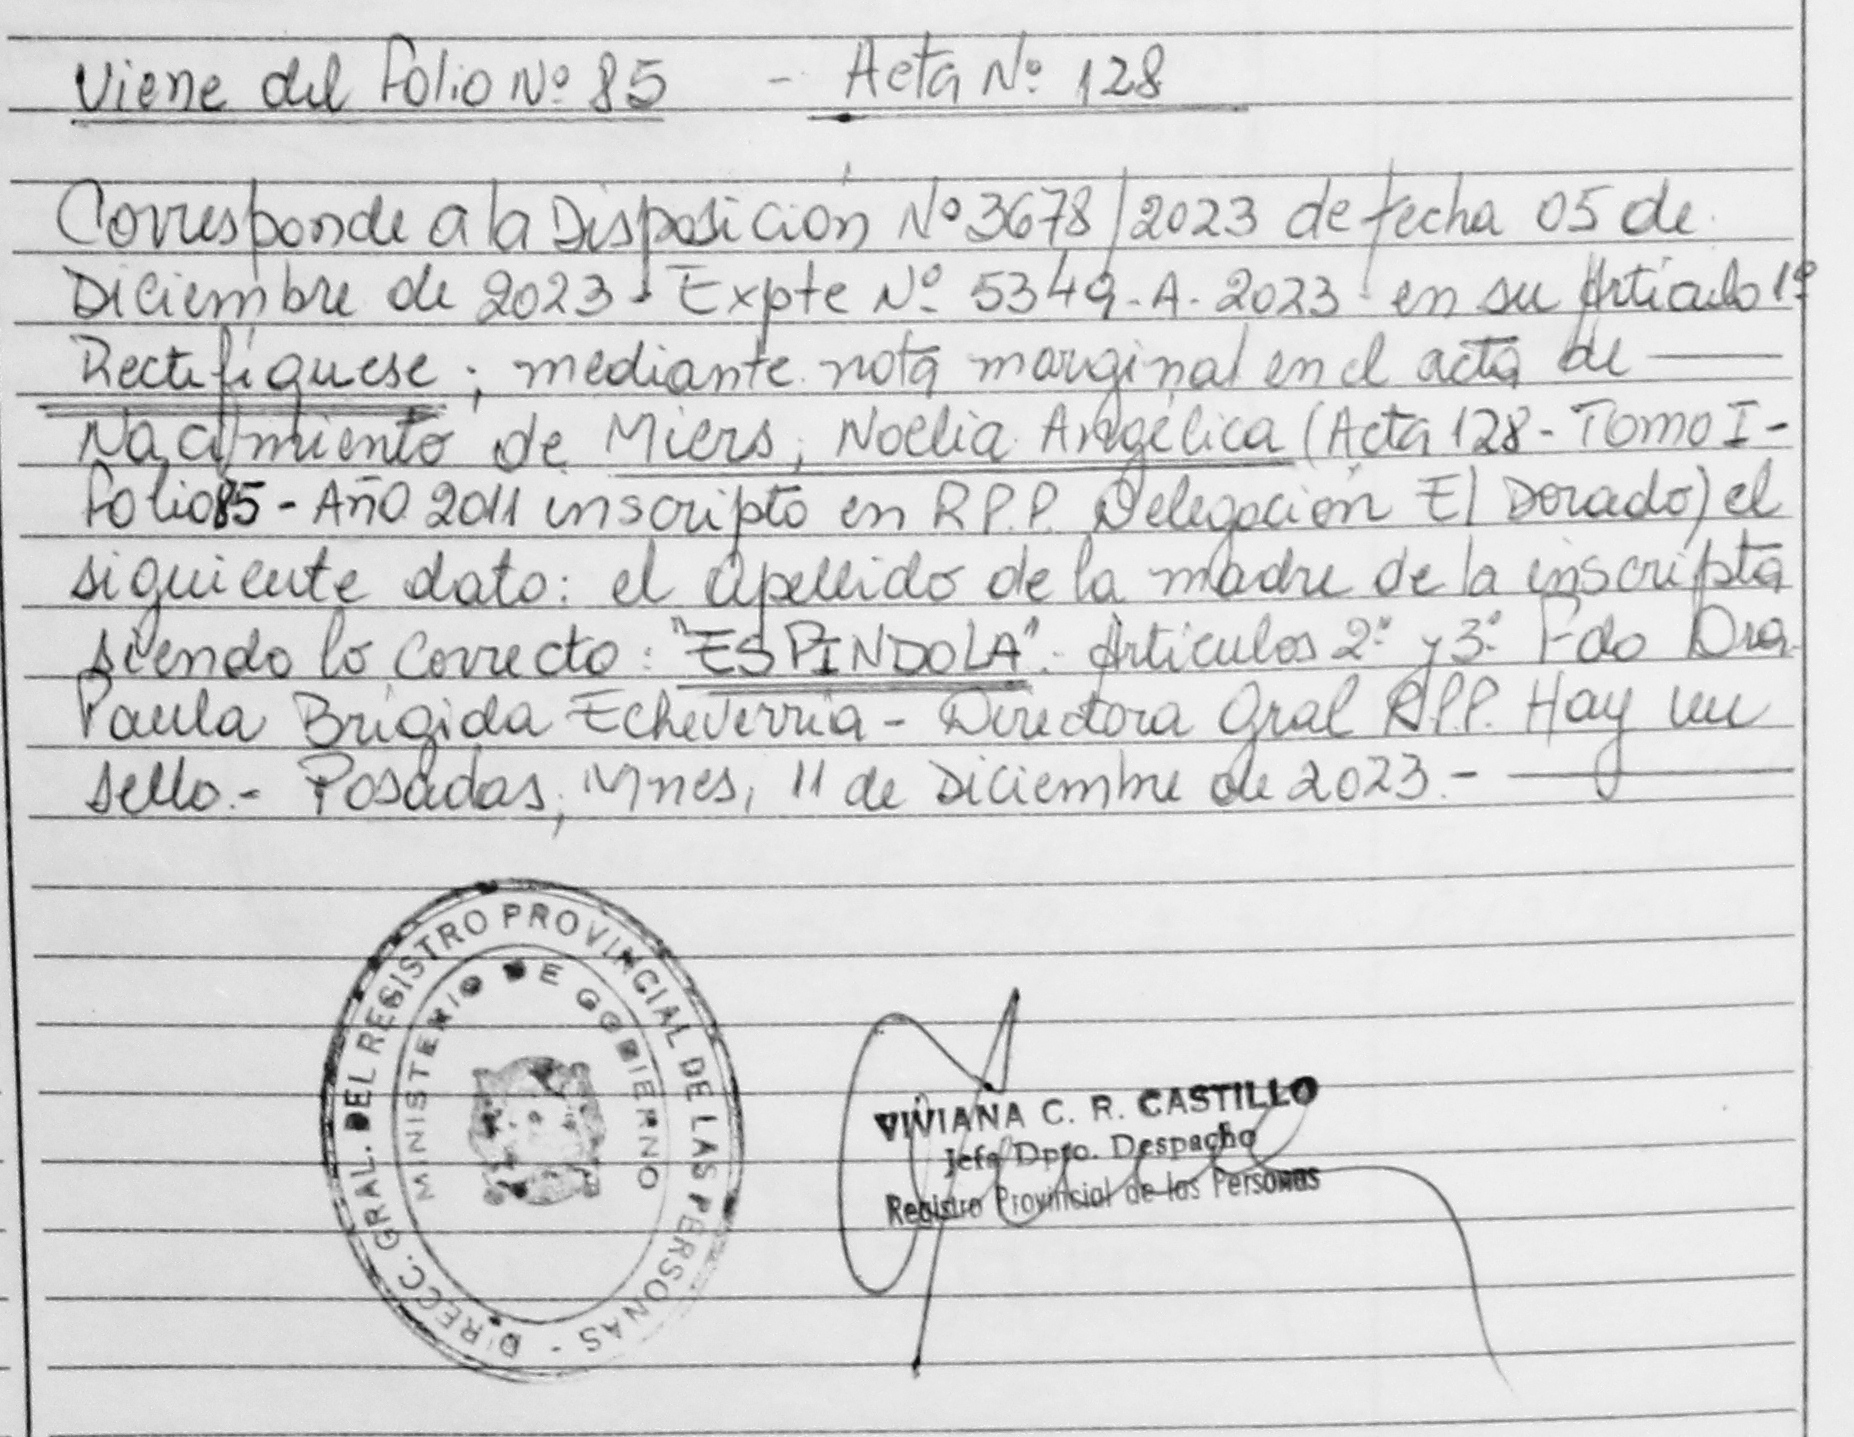 Viene del Folio Nº 85 - Acta Nº 128
Corresponde a la Disposición Nº 3678/2023 de fecha 05 de
Diciembre de 2023 - Expte Nº 5349-A-2023 - en su Artículo 1º
Rectifíquese; mediante nota marginal en el acta de
Nacimiento de Miers, Noelia Angélica (Acta 128 - Tomo I -
Folio 85 - Año 2011 inscripto en R.P.P. Delegación El Dorado) el
siguiente dato: el apellido de la madre de la inscripta
siendo lo correcto: "ESPINDOLA". Artículos 2º y 3º Fdo Dra
Paula Brígida Echeverría - Directora Gral R.P.P. Hay un
sello.- Posadas, Mnes, 11 de Diciembre de 2023.-
DIRECC. GRAL. DEL REGISTRO PROVINCIAL DE LAS PERSONAS -
MINISTERIO DE GOBIERNO
VIVIANA C. R. CASTILLO
Jefa Dpto. Despacho
Registro Provincial de las Personas